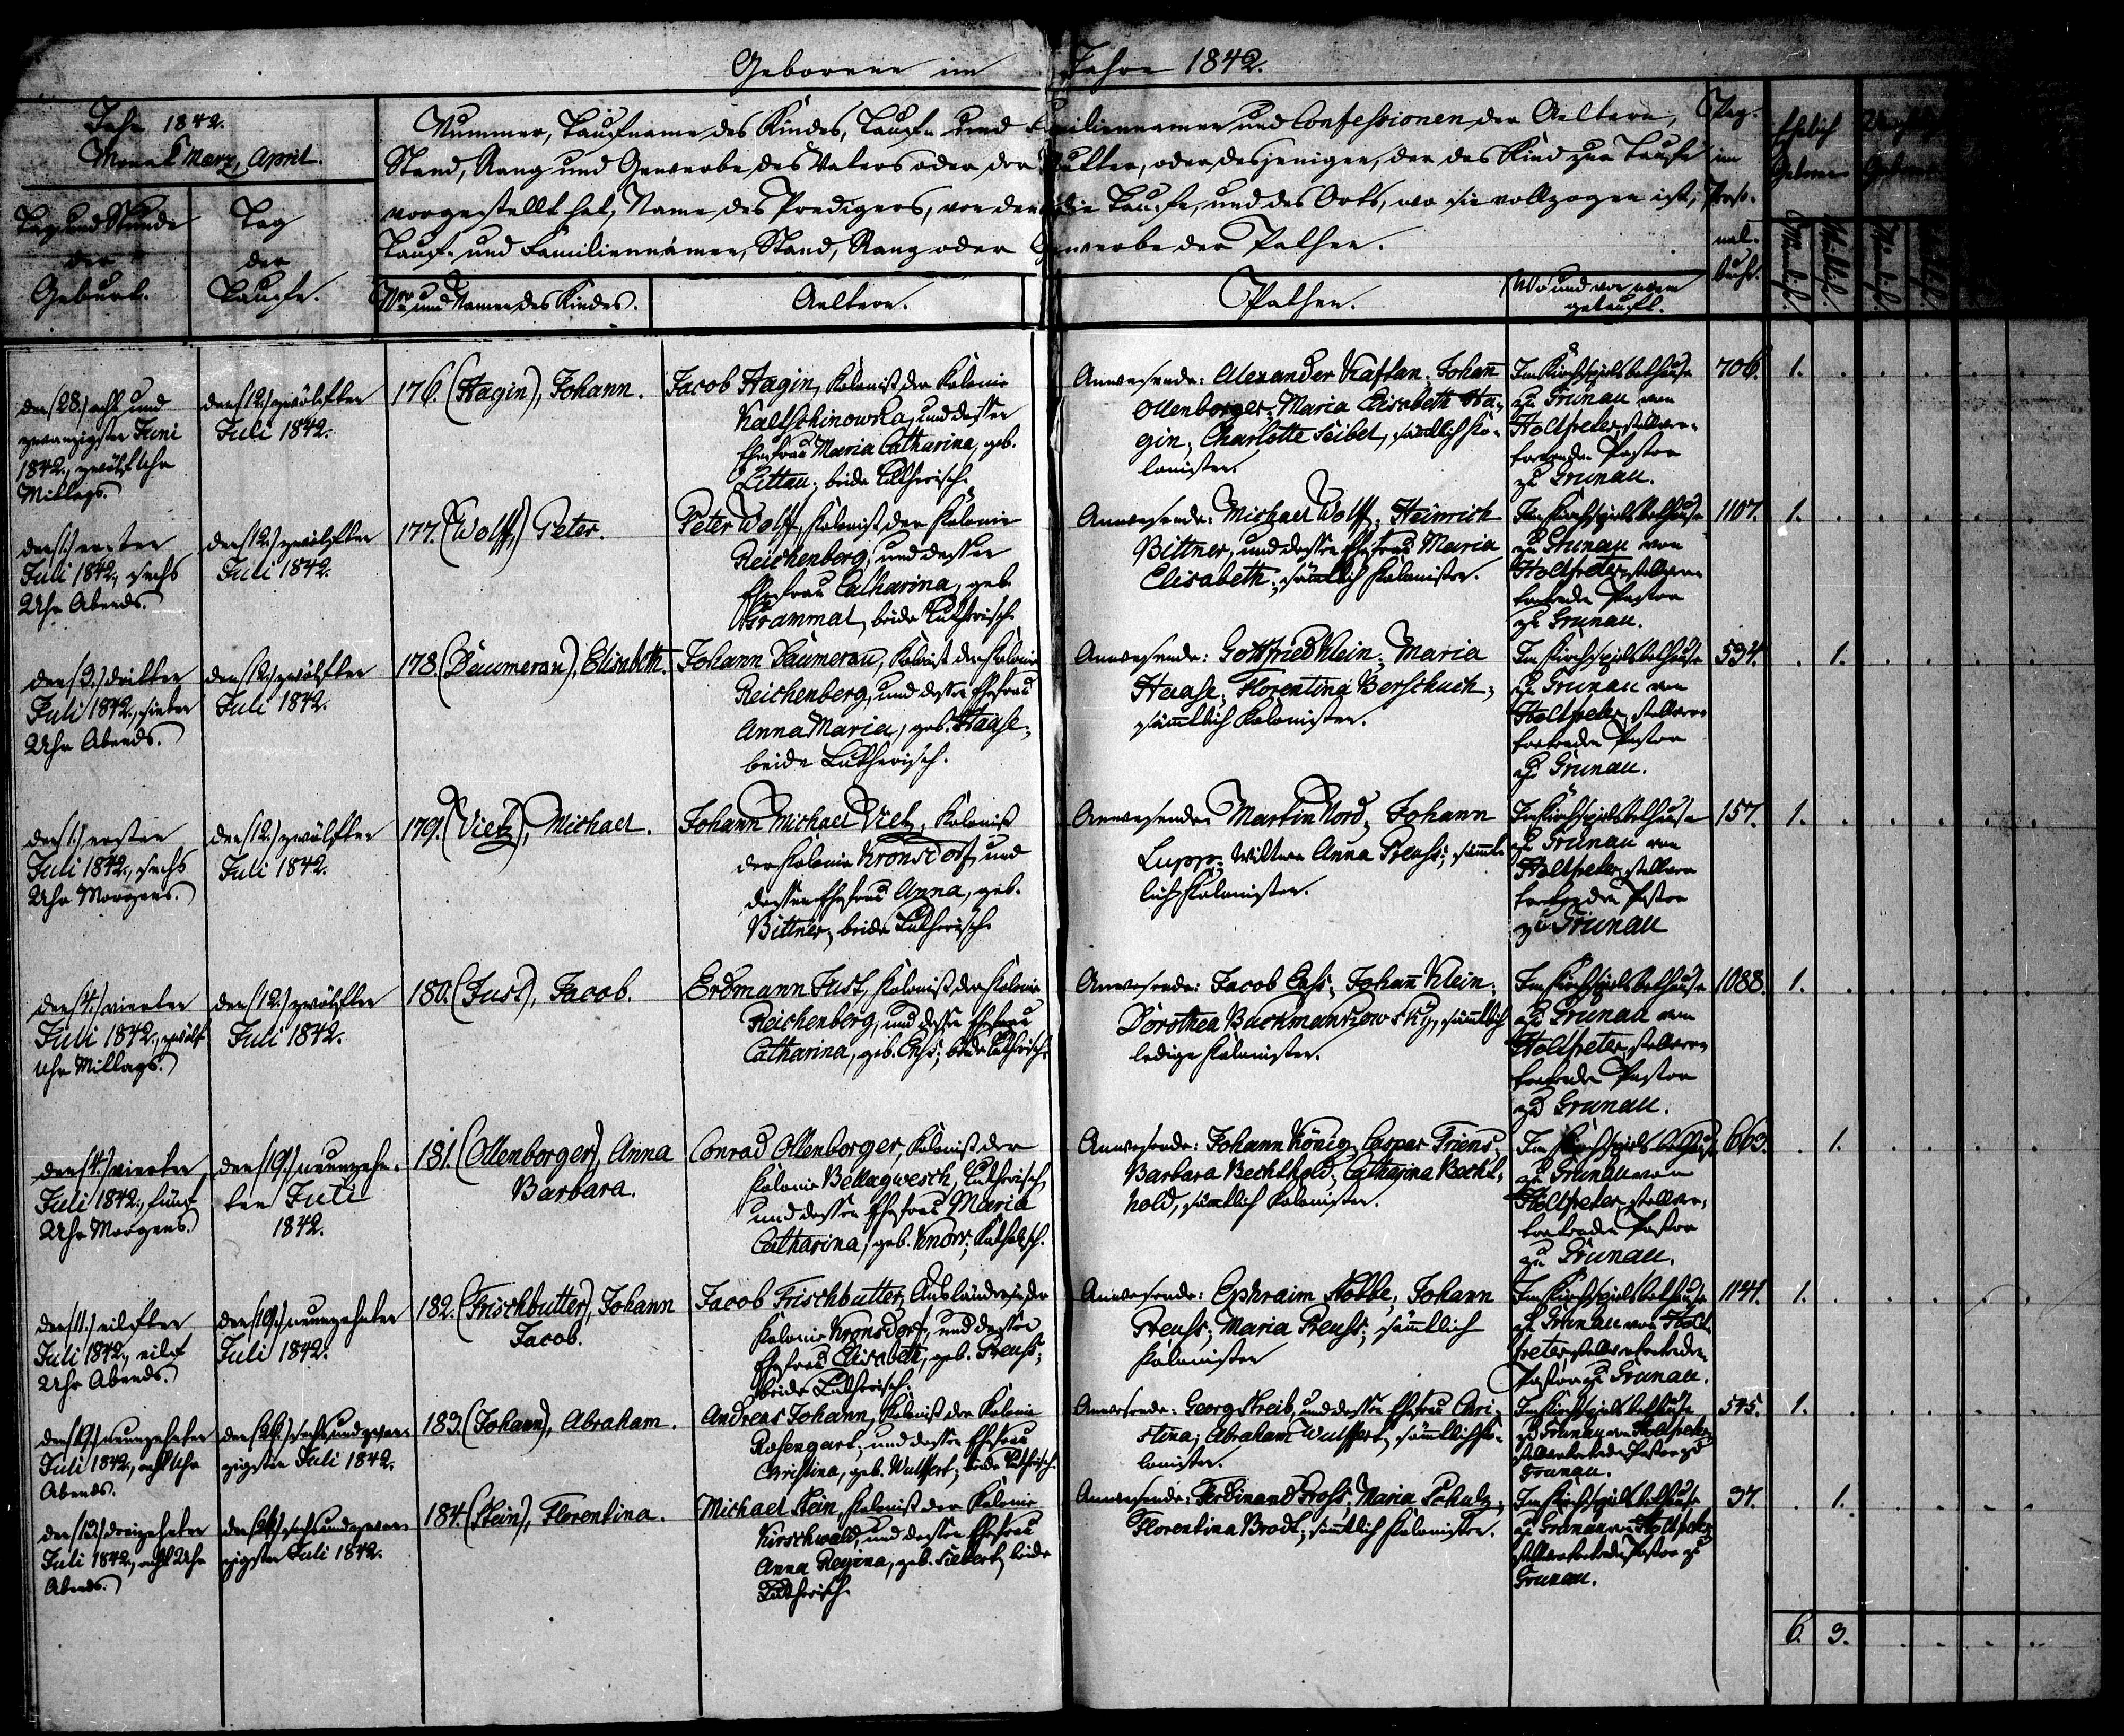 Geborene im Jahre 1842.
Jahr 1842.
Monat März, April.
Tag und Stunde
der
Geburt.
Tag
der
Taufe.
Nummer, Taufname des Kindes, Tauf- und Familiennamen und Confessionen der Aeltern,
Stand, Rang und Gewerbe des Vaters oder der Mutter, oder desjenigen, der das Kind zur Taufe
vorgestellt hat, Name des Predigers, von dem die Taufe, und des Orts, wo sie vollzogen ist,
Tauf- und Familiennamen, Stand, Rang oder Gewerbe der Pathen.
Nro und Namen des Kindes.
Aeltern.
Pathen.
Wo und von wem
getauft.
Pag.
im
Perso-
nal-
buch.
Ehelich
Geboren
Geboren
Männlich.
Weiblich.
Männlich.
den (28.) acht und
zwanzigsten Juni
1842., zwölf Uhr
Mittags.
den (12.) zwölften
Juli 1842.
176. (Hagin), Johann.
Jacob Hagin, Kolonist der Kolonie
Kaltschinowka, und dessen
Ehefrau Maria Catharina, geb.
Littau; beide Lutherisch.
Anwesende: Alexander Kaftan; Johan̄
Ollenborger; Maria Elisabeth Ha-
gin; Charlotte Seibel, sämtlich Ko-
lonisten.
Im Kirchspielsbethause
zu Grunau von
Holtfreter, stellver-
tretender Pastor
zu Grunau.
706. 1.
den (1.) ersten
Juli 1842., sechs
Uhr Abends.
den (12.) zwölften
Juli 1842.
177. (Wolff,) Peter.
Peter Wolff, Kolonist der Kolonie
Reichenberg, und dessen
Ehefrau Catharina, geb.
Grammat, beide Lutherisch.
Anwesende: Michael Wolff; Heinrich
Bittner, und dessen Ehefrau Maria
Elisabeth; sämtlich Kolonisten.
Im Kirchspielsbethause
zu Grunau von
Holtfreter, stellver-
tretender Pastor
zu Grunau.
1107. 1.
den (3.) dritten
Juli 1842., sieben
Uhr Abends.
den (12.) zwölften
Juli 1842.
178. (Däumerau), Elisabeth.
Johann Däumerau, Kolonist der Kolonie
Reichenberg, und dessen Ehefrau
Anna Maria, geb. Haase;
beide Lutherisch.
Anwesende: Gottfried Klein; Maria
Haase; Florentina Berschuck;
sämtlich Kolonisten.
Im Kirchspielsbethause
zu Grunau von
Holtfreter, stellver-
tretender Pastor
zu Grunau.
534. 1.
den (1.) ersten
Juli 1842., sechs
Uhr Morgens.
den (12.) zwölften
Juli 1842.
179. (Vietz), Michael.
Johann Michael Vietz, Kolonist
der Kolonie Kronsdorf, und
dessen Ehefrau Anna, geb.
Bittner; beide Lutherisch
Anwesende: Martin Nord; Johann
Lupp; Wittwe Anna Preuss; sämt-
lich Kolonisten.
Im Kirchspielsbethause
zu Grunau von
Holtfreter, stellver-
tretender Pastor
zu Grunau
157. 1.
den (4.) vierten
Juli 1842., zwölf
Uhr Mittags.
den (12.) zwölften
Juli 1842.
180. (Just), Jacob.
Erdmann Just, Kolonist der Kolonie
Reichenberg, und dessen Ehefrau
Catharina, geb. Enss; beide Lutherisch.
Anwesende: Jacob Enss; Johan̄ Klein;
Dorothea Buckmankowsky, sämtlich
ledige Kolonisten.
Im Kirchspielsbethause
zu Grunau von
Holtfreter, stellver-
tretender Pastor
zu Grunau.
1088. 1.
den (4.) vierten
Juli 1842., fünf
Uhr Morgens.
den (19.) neunzehn-
ten Juli
1842.
181. (Ollenborger), Anna
Barbara.
Conrad Ollenborger, Kolonist der
Kolonie Bellagwesch, Lutherisch,
und dessen Ehefrau Maria
Catharina, geb. Knorr; Katholisch.
Anwesende: Johann König; Caspar Friens;
Barbara Bechthold; Catharina Becht-
hold, sämtlich Kolonisten.
Im Kirchspielsbethause
zu Grunau von
Holtfreter, stellver-
tretender Pastor
zu Grunau.
663. 1.
den (11.) eilften
Juli 1842., eilf
Uhr Abends.
den (19.) neunzehnten
Juli 1842.
182. (Frischbutter), Johann
Jacob.
Jacob Frischbutter, Ausländer in der
Kolonie Kronsdorf, und dessen
Ehefrau Elisabeth, geb. Preuss;
beide Lutherisch.
Anwesende: Ephraim Kolbe; Johann
Preuss; Maria Preuss; sämtlich
Kolonisten
Im Kirchspielsbethause
zu Grunau von Holt-
freter, stellvertretender
Pastor zu Grunau.
1141. 1.
den (19.) neunzehnten
Juli 1842., acht Uhr
Abends.
den (26.) sechs und zwan-
zigsten Juli 1842.
183. (Johann), Abraham.
Andreas Johann, Kolonist der Kolonie
Rosengart, und dessen Ehefrau
Christina, geb. Wulffert; beide Lutherisch.
Anwesende: Georg Streib, und dessen Ehefrau Chri-
stina; Abraham Wulffert, sämtlich Ko-
lonisten.
Im Kirchspielsbethause
zu Grunau von Holtfreter,
stellvertretender Pastor zu
Grunau.
545. 1.
den (13.) dreizehnten
Juli 1842., acht Uhr
Abends.
den (26.) sechs und zwan-
zigsten Juli 1842.
184. (Stein), Florentina.
Michael Stein, Kolonist der Kolonie
Kirschwald, und dessen Ehefrau
Anna Regina, geb. Siebert, beide
Lutherisch
Anwesende: Ferdinand Gross; Maria Schulz;
Florentina Brodt; sämtlich Kolonisten.
Im Kirchspielsbethause
zu Grunau von Holtfreter,
stellvertretender Pastor zu
Grunau.
97. 1.
6. 3.